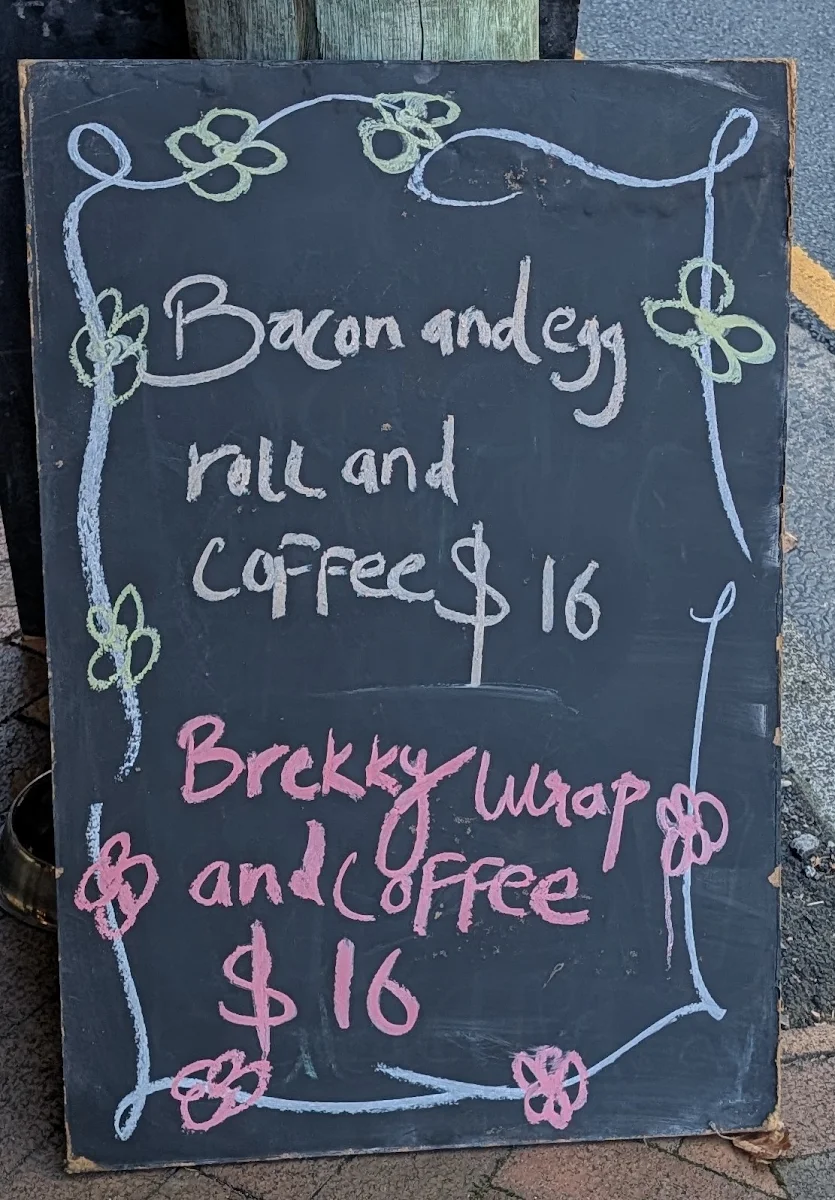 Bacon and egg
roll and
Coffee $ 16
Brekky Wrap
and Coffee
$ 16